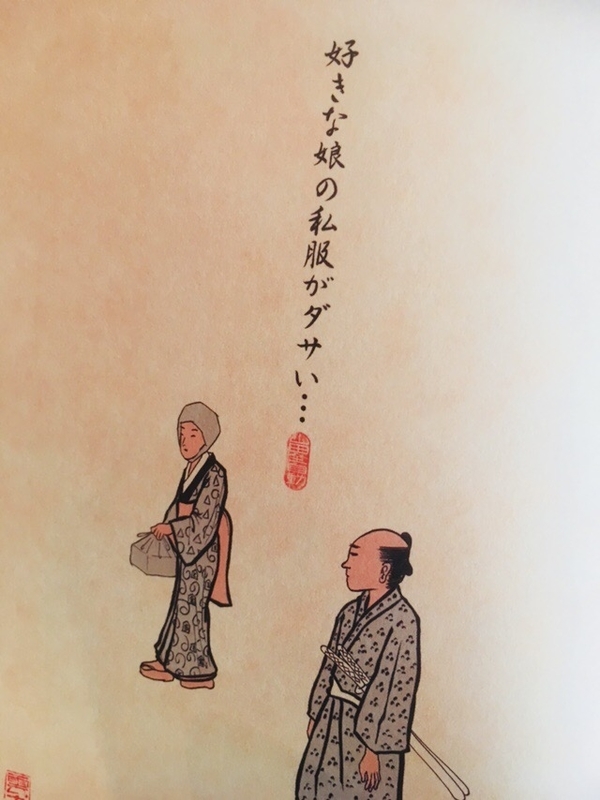 好きな娘の私服がダサい…